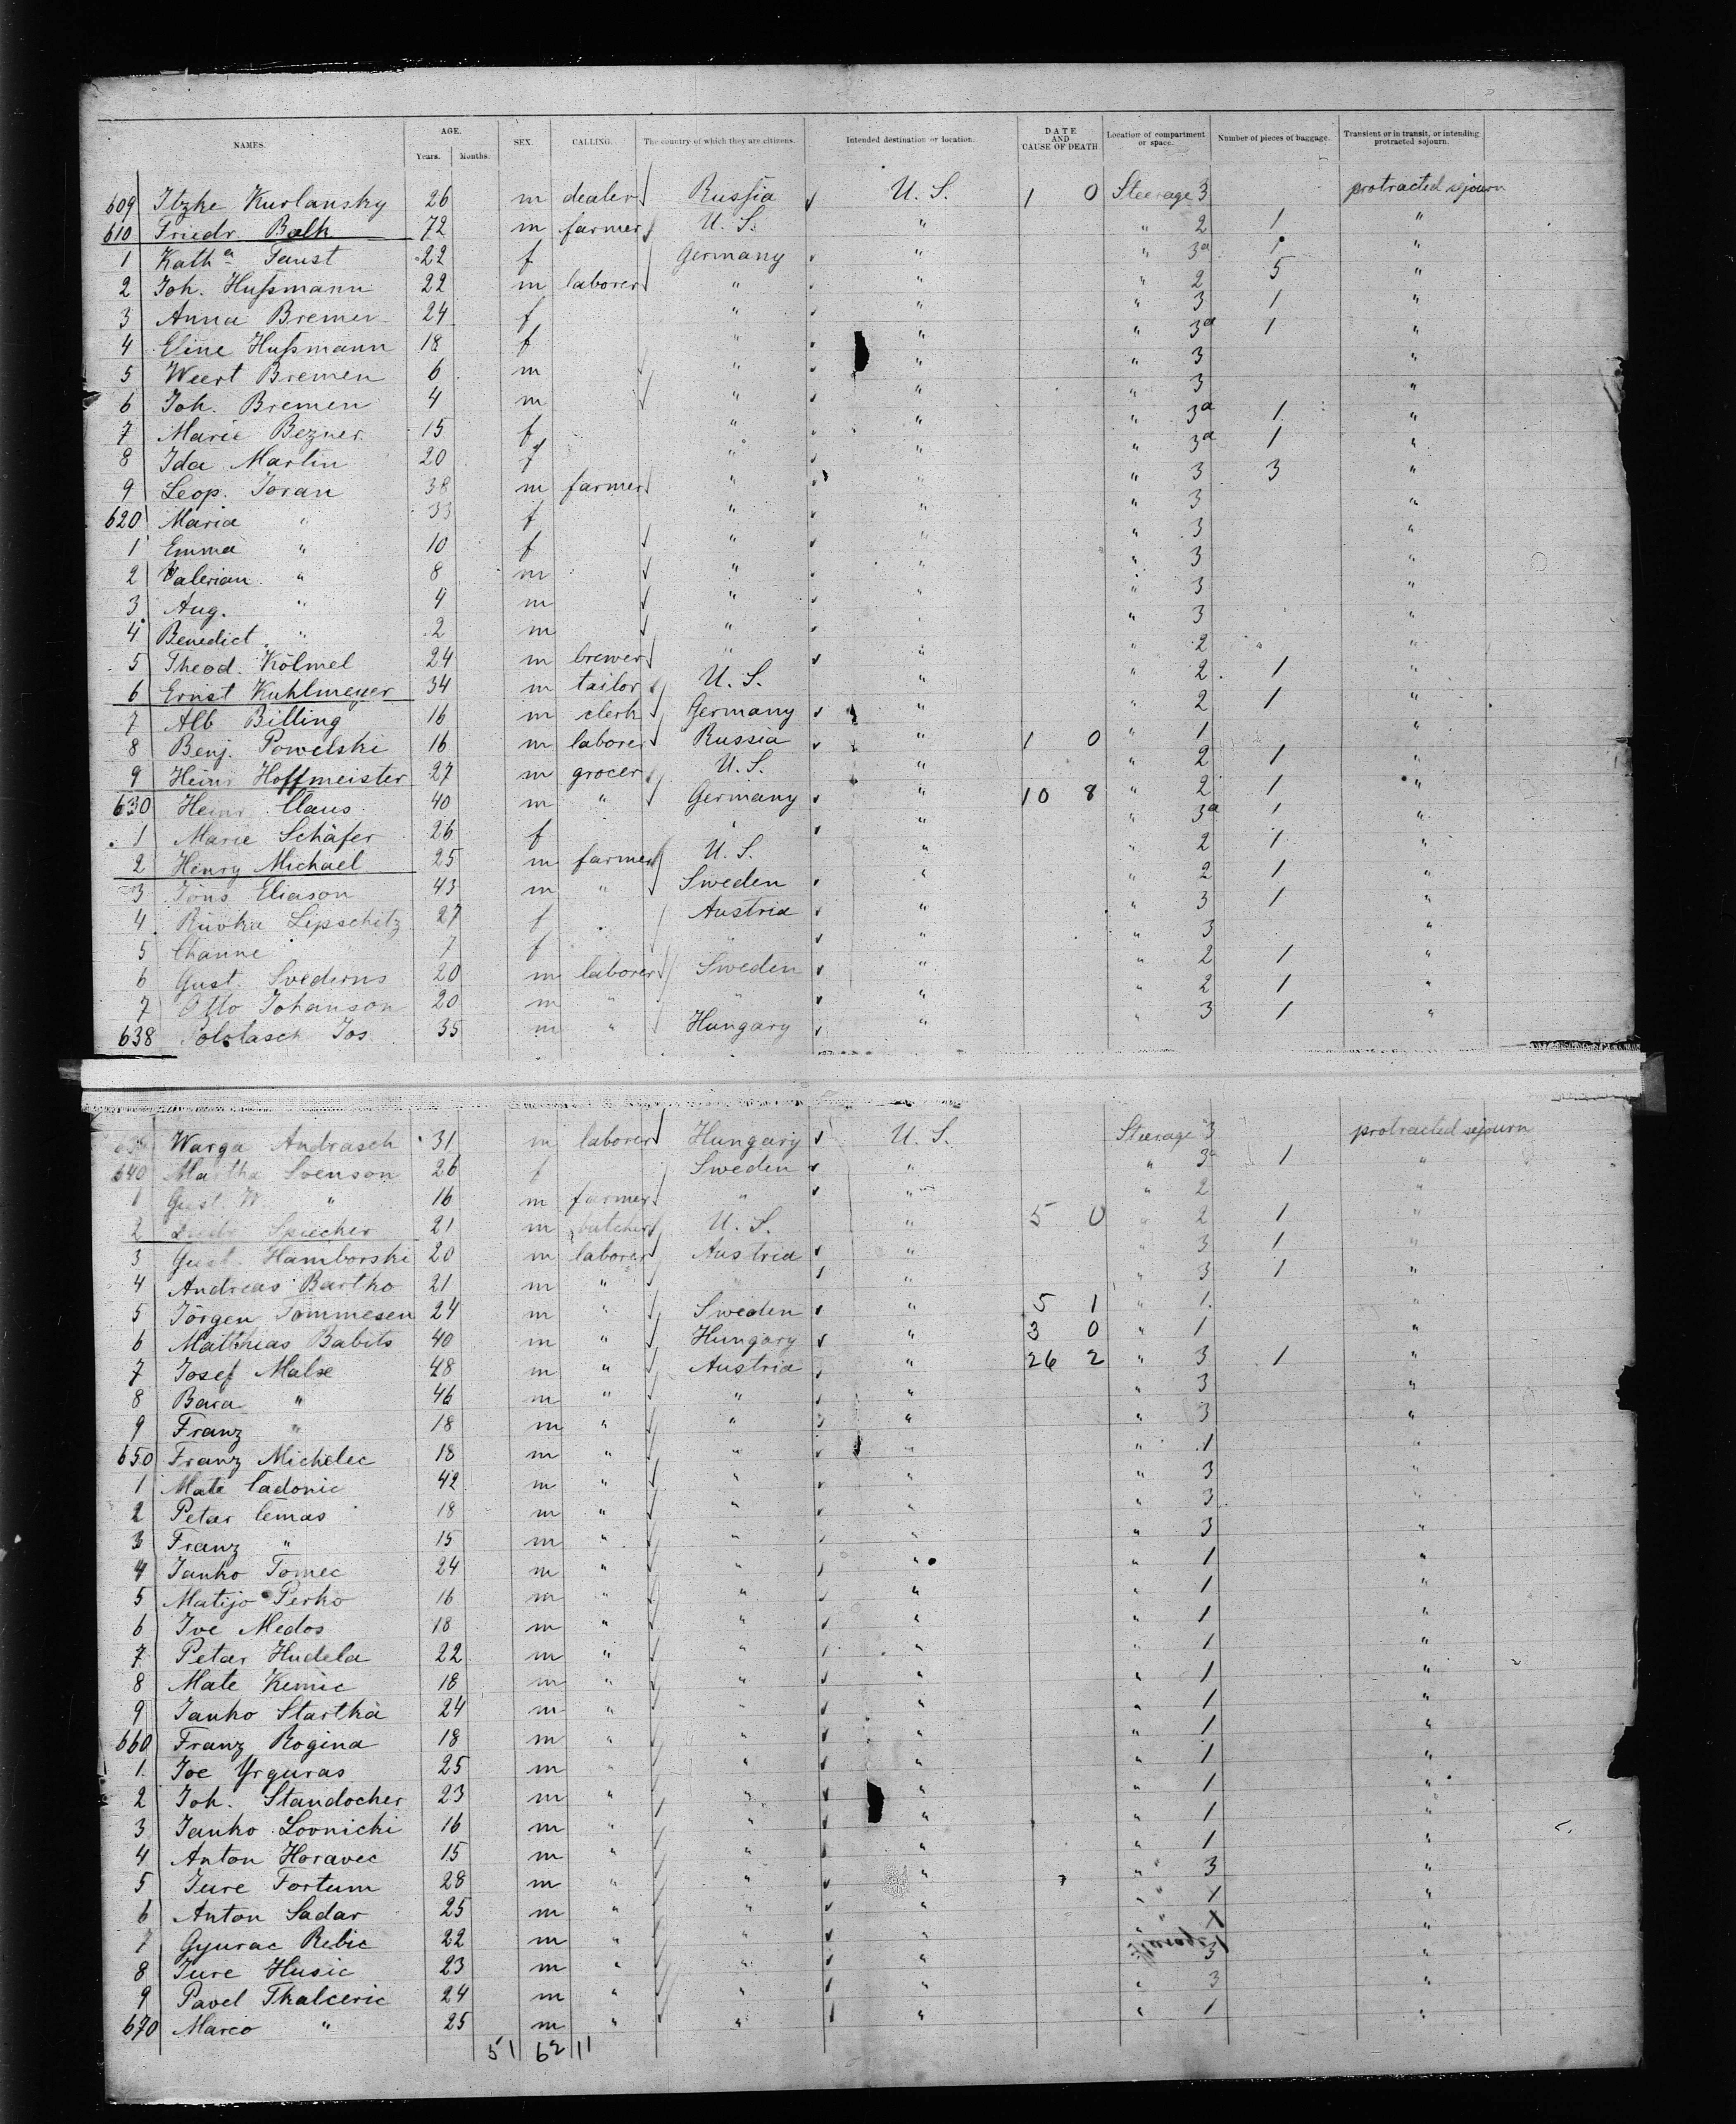 NAMES. AGE. Years. Months. SEX. CALLING. The country of which they are citizens. Intended destination or location. DATE AND CAUSE OF DEATH Location of compartment or space. Number of pieces of baggage. Transient or in transit, or intending protracted sojourn.
609 Itzke Kurlansky 26 m dealer Russia U. S. 1 0 Steerage 3 protracted sojourn
610 Friedr. Balk 72 m farmer U. S. " " 2 1 "
1 Katha Faust 22 f Germany " " 3a 1 "
2 Joh. Hußmann 22 m laborer " " " 2 5 "
3 Anna Bremer 24 f " " " 3 1 "
4 Eline Hußmann 18 f " " " 3a 1 "
5 Weert Bremen 6 m " " " 3 "
6 Joh. Bremen 4 m " " " 3 "
7 Marie Bezner 15 f " " " 3a 1 "
8 Ida Martin 20 f " " " 3a 1 "
9 Leop. Joran 38 m farmer " " " 3 3 "
620 Maria " 33 f " " " 3 "
1 Emma " 10 f " " " 3 "
2 Valerian " 8 m " " " 3 "
3 Aug. " 4 m " " " 3 "
4 Benedict " 2 m " " " 3 "
5 Theod. Kölmel 24 m brewer " " " 2 "
6 Ernst Kuhlmeyer 34 m tailor U. S. " " 2 1 "
7 Alb Billing 16 m clerk Germany " " 2 1 "
8 Benj. Powelski 16 m laborer Russia " 1 0 " 1 "
9 Heinr Hoffmeister 27 m grocer U. S. " " 2 1 "
630 Heinr. Claus 40 m " Germany " 10 8 " 2 1 "
1 Marie Schäfer 26 f " " 3a 1 "
2 Henry Michael 25 m farmer U. S. " " 2 1 "
3 Jöns Eliason 43 m " Sweden " " 2 1 "
4 Riwka Lipschitz 27 f Austria " " 3 1 "
5 Channe 7 f " " " 3 "
6 Gust. Svederns 20 m laborer Sweden " " 2 1 "
7 Otto Johanson 20 m " " " " 2 1 "
638 Jos. 35 m " Hungary " " 3 1 "
Warga Andrasch 31 m laborer Hungary U. S. Steerage 3 protracted sojourn
640 Martha Svenson 26 f Sweden " " 3a 1 "
1 Gust. W " 16 m farmer " " " 2 "
2 Spiecher 21 m butcher U. S. " 5 0 " 2 1 "
3 Gust. Hamborski 20 m laborer Austria " " 3 1 "
4 Andreas Bartko 21 m " " " " 3 1 "
5 Jörgen Tommesen 24 m " Sweden " 5 1 " 1 "
6 Matthias Babits 40 m " Hungary " 3 0 " 1 "
7 Josef Malse 48 m " Austria " 26 2 " 3 1 "
8 Bara " 46 m " " " " 3 "
9 Franz " 18 m " " " " 3 "
650 Franz Michelec 18 m " " " " 1 "
1 Mate Cadonic 42 m " " " " 3 "
2 Petar Cemas 18 m " " " " 3 "
3 Franz " 15 m " " " " 3 "
4 Janko Tomec 24 m " " " " 1 "
5 Matijo Perko 16 m " " " " 1 "
6 Ive Medos 18 m " " " " 1 "
7 Petar Hudela 22 m " " " " 1 "
8 Mate Kemic 18 m " " " " 1 "
9 Janko Startka 24 m " " " " 1 "
660 Franz Rogina 18 m " " " " 1 "
1 Joe Yrguras 25 m " " " " 1 "
2 Joh. Standocher 23 m " " " " 1 "
3 Janko Lovnicki 16 m " " " " 1 "
4 Anton Horavec 15 m " " " " 1 "
5 Jure Fortum 28 m " " " " 3 "
6 Anton Sadar 25 m " " " " 1 "
7 Gyurac Rebic 22 m " " " Steerage 1 "
8 Jure Husic 23 m " " " 3 "
9 Pavel Thalceric 24 m " " " " 3 "
670 Marco " 25 m " " " " 1 "
51 62 11